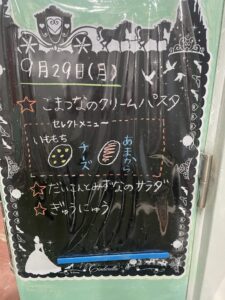 9月29日(月)
☆こまつなのクリームパスタ
セレクトメニュー
いももち
チーズ
あまから
☆だいこんとみずなのサラダ
☆ぎゅうにゅう
Cinderella